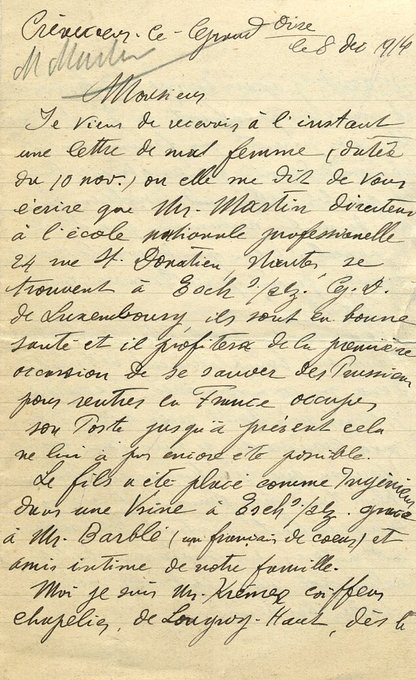 Crèvecoeur-le-Grand Oise
le 8 dec 1914
M Martin
Monsieur
Je viens de recevois à l'instant
une lettre de mal femme (datée
du 10 nov.) ou elle me dit de vous
écrire que Mr. Martin directeur
à l'école nationale professionelle
24 rue St. Donatien, Nantes, se
trouvent à Esch s/alz. Cg. D.
de Luxembourg, ils sont en bonne
santé et il profitera de la première
occasion de se sauver des Prussiens
pour rentrer en France occuper
son Poste jusqu'à présent cela
ne lui à pas encore été posible.
Le fils a été placé comme Ingénieur
dans une Usine à Esch s/alz. grace
à Mr. Barblé (un français de coeur) et
amis intime de notre famille.
Moi je suis Mr. Krémer coiffeur
chapelier, de Longwy-Haut, dès le